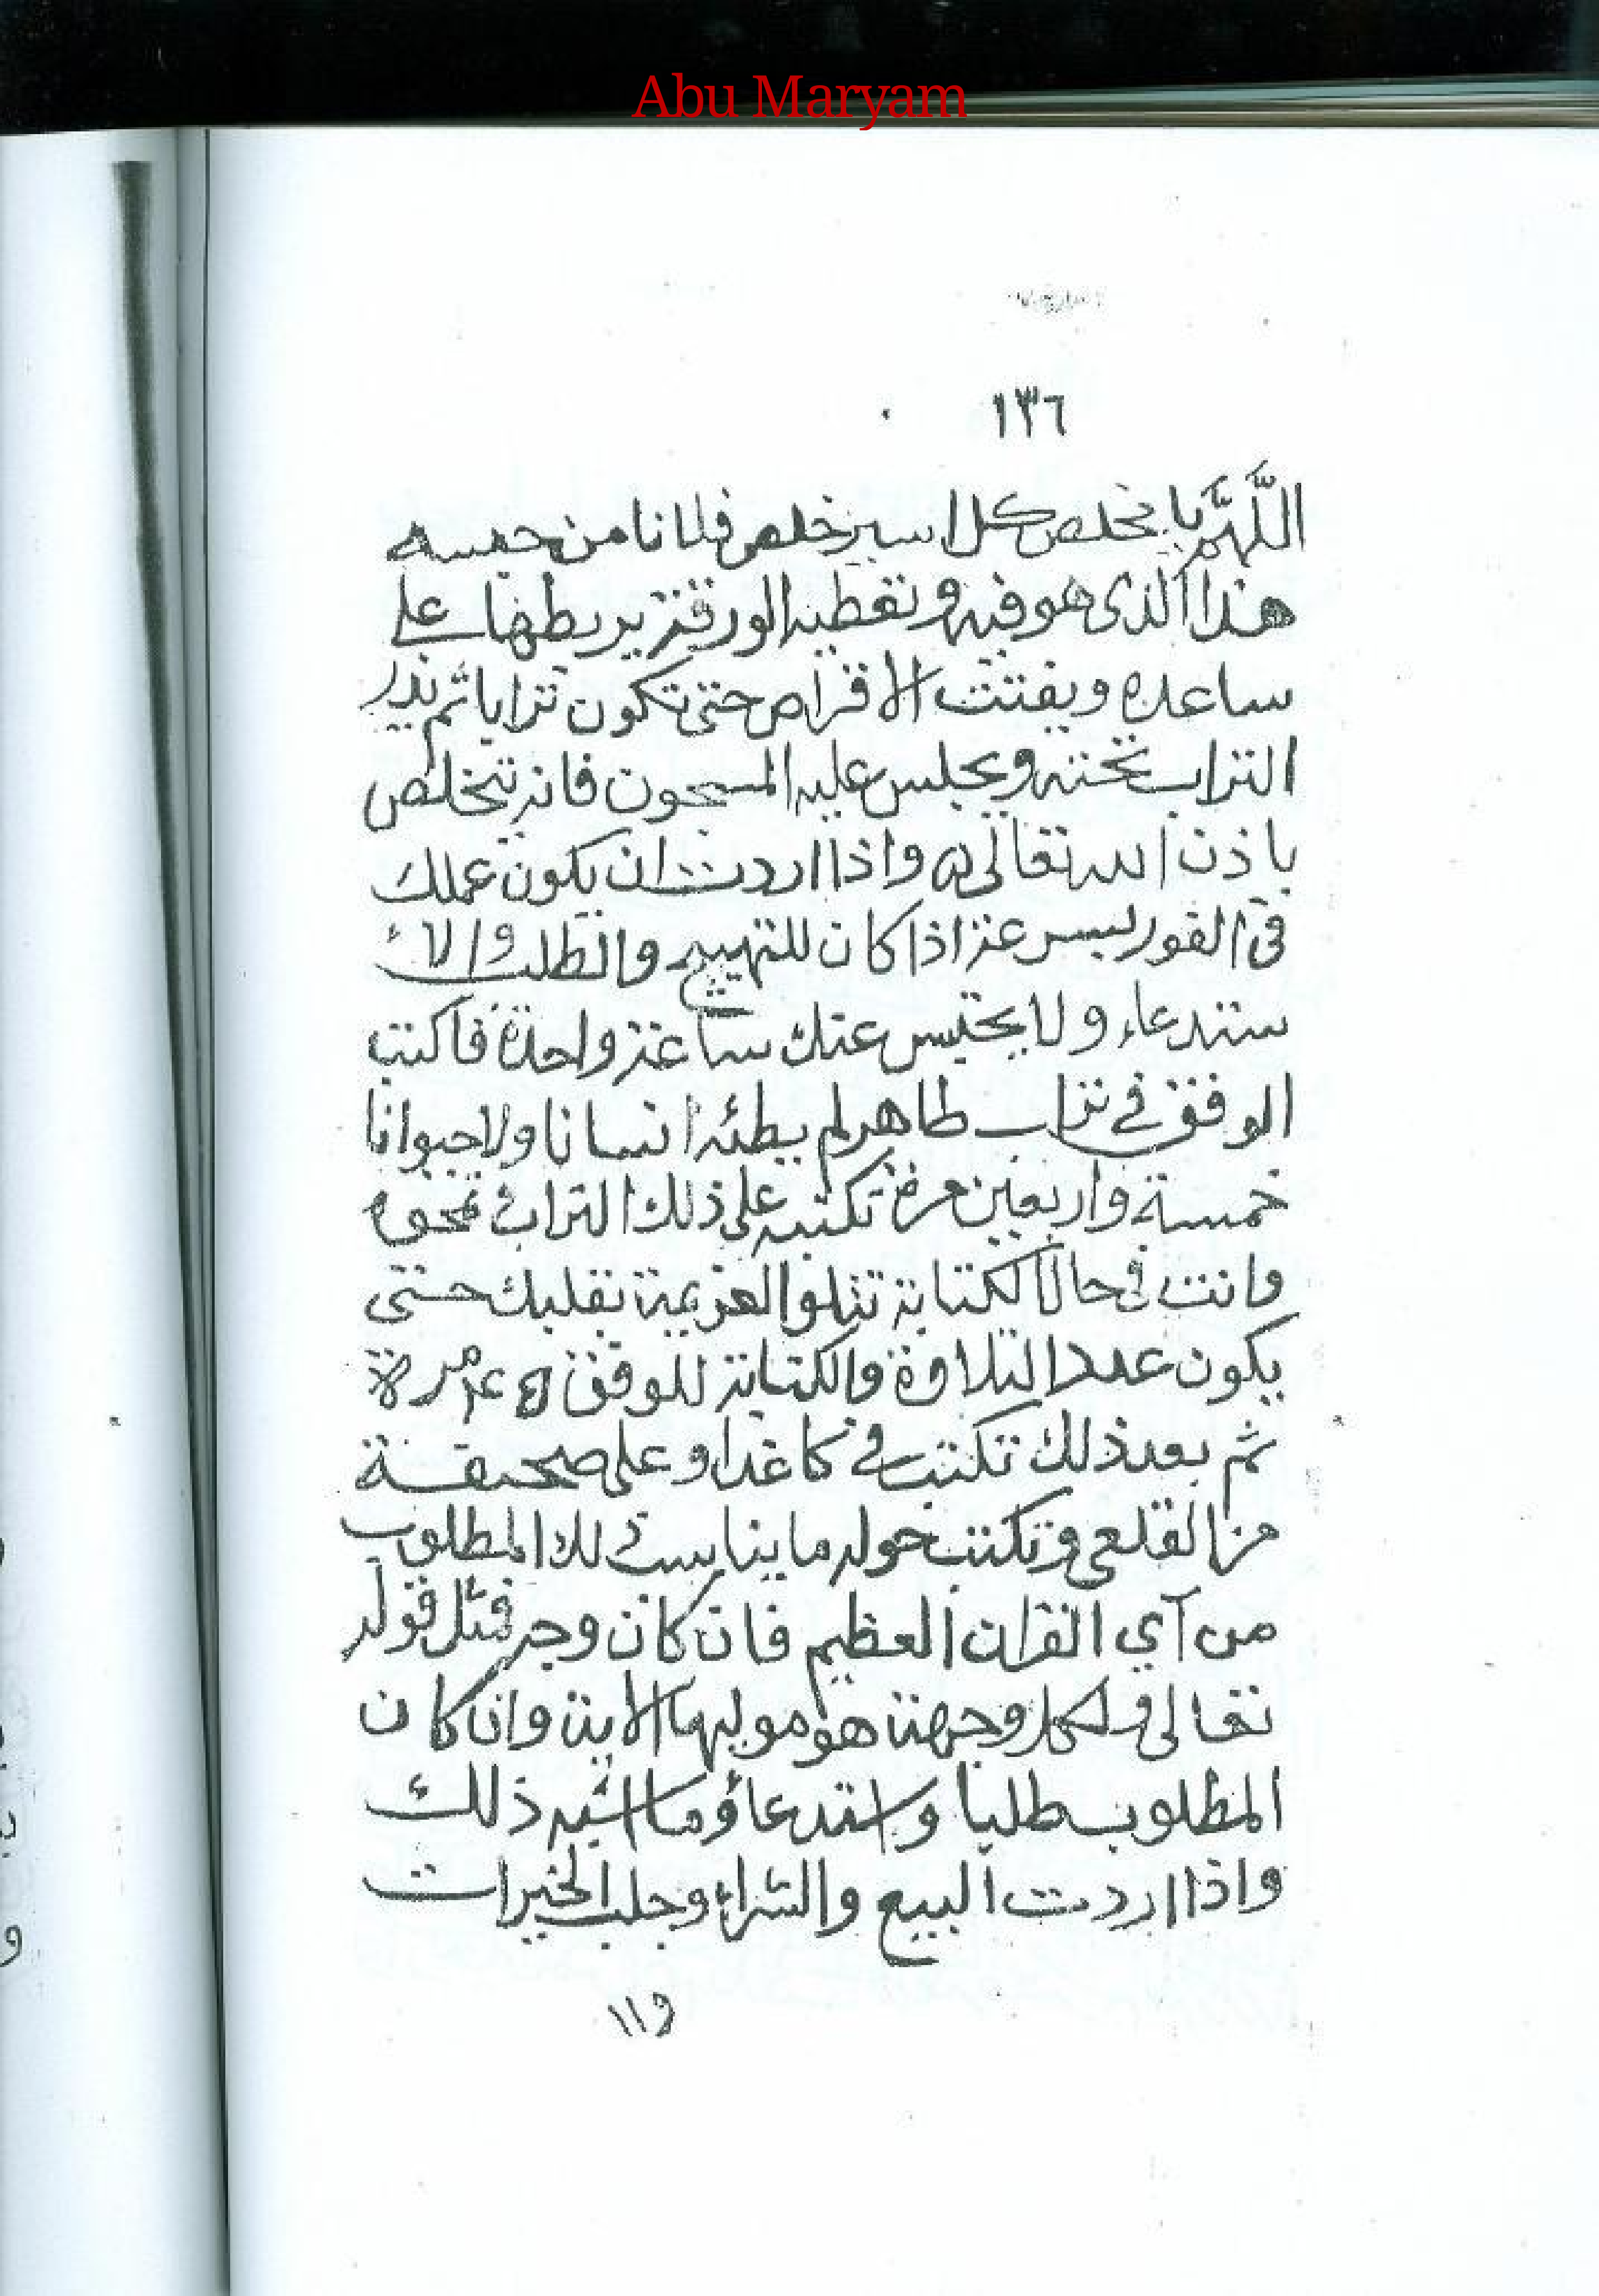 Abu Maryam
١٣٦
اللَّهُمَّ يا مخلص كل اسير خلص فلانا من حبسه
هذا الذى هو فيه وتعطيه الورقة يربطها على
ساعده ويفتت الاقراص حتى تكون ترابا ثم يذر
التراب تحته ويجلس عليه المسجون فانه يتخلص
باذن الله تعالى واذا اردت ان يكون عملك
فى الفور بسرعة اذا كان للتهييج والطلب والا
ستدعاء ولا يحتبس عنك ساعة واحدة فاكتب
الوفق في تراب طاهر لم يطئه انسانا ولا حيوانا
خمسة واربعين مرة تكتبه على ذلك التراب تمحوه
وانت فى حال الكتابة تتلوا العزيمة بقلبك حتى
يكون عدد التلاوة والكتابة للوفق ٤٥ مرة
ثم بعد ذلك تكتب في كاغد او على صحيفة
من القلعي وتكتب حوله ما يناسب لك المطلوب
من آي القران العظيم فان كان وجه فمثل قوله
تعالى ولكل وجهة هو موليها الاية وان كان
المطلوب طلبا واستدعاؤ وما اشبه ذلك
واذا اردت البيع والشراء وجلب الخيرات
١١٩